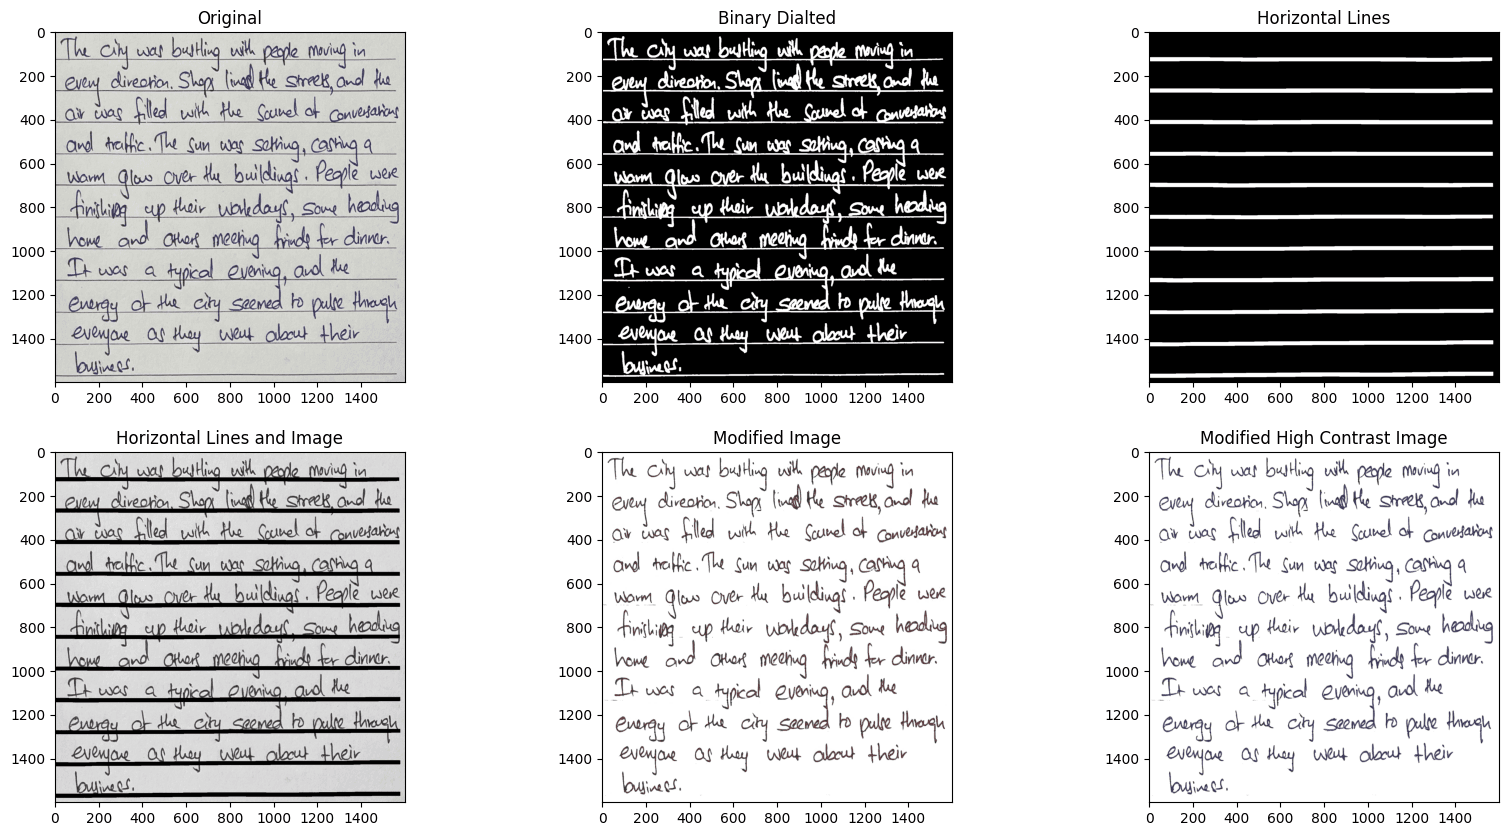 Original
The city was bustling with people moving in
every direction. Shops lined the streets, and the
air was filled with the sound of conversations
and traffic. The sun was setting, casting a
warm glow over the buildings. People were
finishing up their workdays, some heading
home and others meeting frinds for dinner.
It was a typical evening, and the
energy of the city seemed to pulse through
everyone as they went about their
business.
0
200
400
600
800
1000
1200
1400
0 200 400 600 800 1000 1200 1400
Binary Dialted
The city was bustling with people moving in
every direction. Shops lined the streets, and the
air was filled with the sound of conversations
and traffic. The sun was setting, casting a
warm glow over the buildings. People were
finishing up their workdays, some heading
home and others meeting frinds for dinner.
It was a typical evening, and the
energy of the city seemed to pulse through
everyone as they went about their
business.
0
200
400
600
800
1000
1200
1400
0 200 400 600 800 1000 1200 1400
Horizontal Lines
0
200
400
600
800
1000
1200
1400
0 200 400 600 800 1000 1200 1400
Horizontal Lines and Image
The city was bustling with people moving in
every direction. Shops lined the streets, and the
air was filled with the sound of conversations
and traffic. The sun was setting, casting a
warm glow over the buildings. People were
finishing up their workdays, some heading
home and others meeting frinds for dinner.
It was a typical evening, and the
energy of the city seemed to pulse through
everyone as they went about their
business.
0
200
400
600
800
1000
1200
1400
0 200 400 600 800 1000 1200 1400
Modified Image
The city was bustling with people moving in
every direction. Shops lined the streets, and the
air was filled with the sound of conversations
and traffic. The sun was setting, casting a
warm glow over the buildings. People were
finishing up their workdays, some heading
home and others meeting frinds for dinner.
It was a typical evening, and the
energy of the city seemed to pulse through
everyone as they went about their
business.
0
200
400
600
800
1000
1200
1400
0 200 400 600 800 1000 1200 1400
Modified High Contrast Image
The city was bustling with people moving in
every direction. Shops lined the streets, and the
air was filled with the sound of conversations
and traffic. The sun was setting, casting a
warm glow over the buildings. People were
finishing up their workdays, some heading
home and others meeting frinds for dinner.
It was a typical evening, and the
energy of the city seemed to pulse through
everyone as they went about their
business.
0
200
400
600
800
1000
1200
1400
0 200 400 600 800 1000 1200 1400